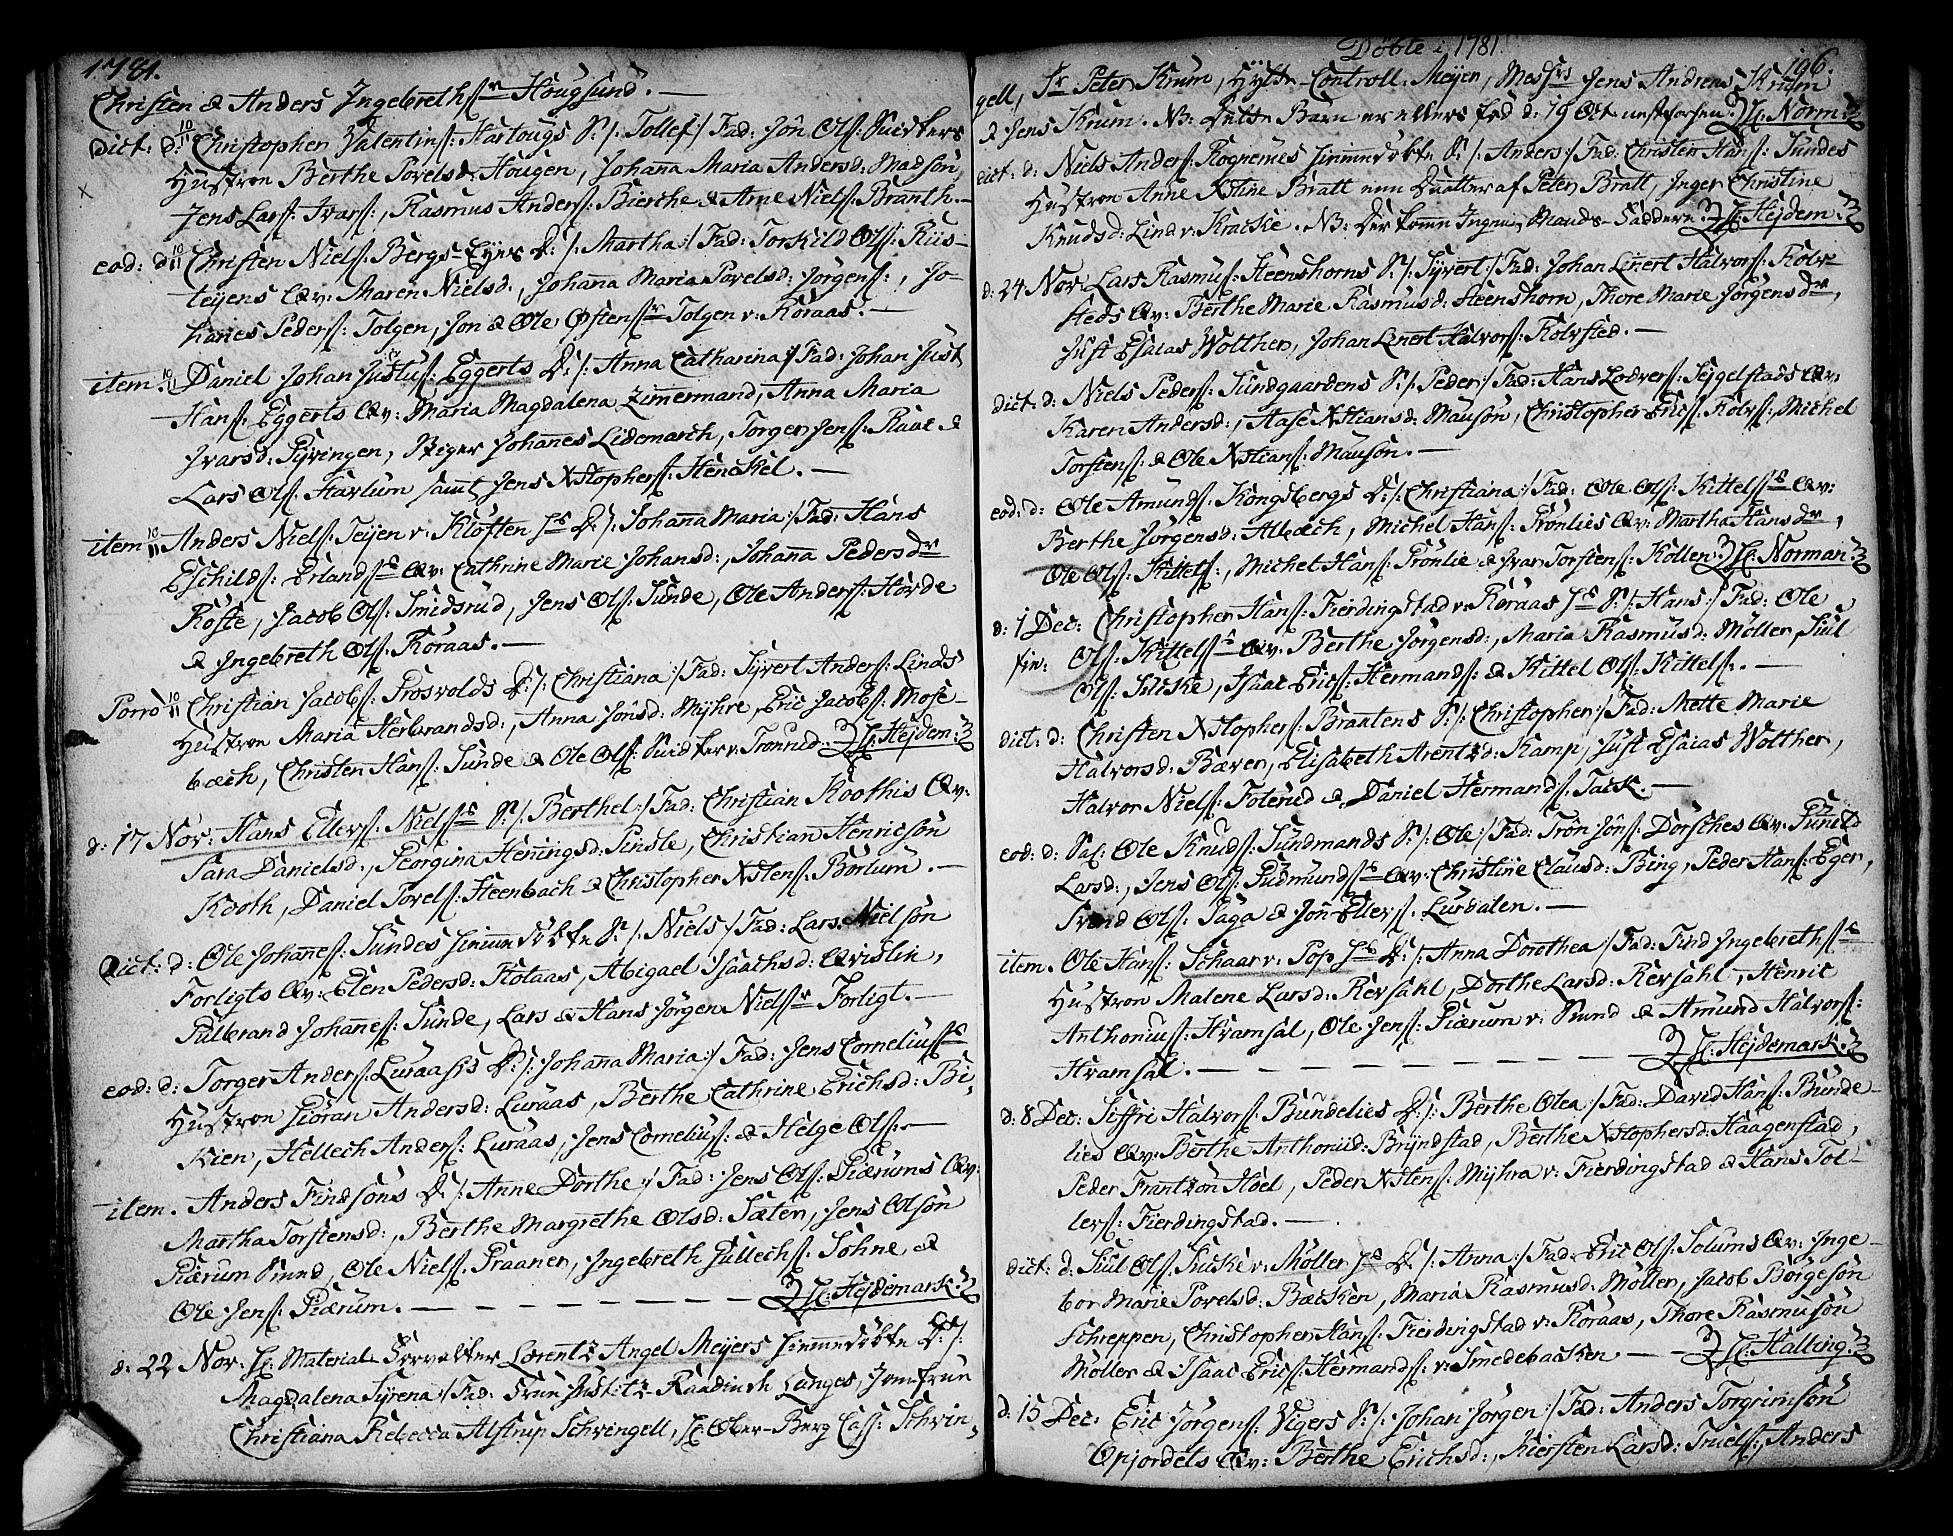 1781.
Christen & Anders Ingebrethsr Hougsund. —
Dict: d: 10/11 Christopher Valentins: Hartougs S: /: Tollef :/ Fad: Jôn Ols: Suiskers
Hustroe Berthe Povelsd: Hougen, Johana Maria Andersd: Madsön,
Jens Lars: Ivars:, Rasmus Anders: Bierche & Arne Niels: Branth. —
eod: d: 10/11 Christen Niels: Bergs-Eyer D: /: Martha :/ Fad: Torkild Ols: Riis-
teyens Qv: Maren Nielsd:, Johana Maria Povelsd: Jörgens:, Jo-
hanes Peders: Tolgen, Jon & Ole Østensr Tolgen v: Roraas. —
item. 10/11 Daniel Johan Justus: Eggerts D: /: Anna Catharina :/ Fad: Johan Just
Hans: Eggerts Qv: Maria Magdalena Zimermand, Anna Maria
Ivarsd: Pyvingen, Johanes Lidemarch, Torger Jens: Raae &
Lars Ols: Havlum samt Jens Xstophers: Henckel. —
item 10/11 Anders Niels: Teijen v: Kloften Hs D: /: Johana Maria :/ Fad: Hans
Eschilds: Erlandsds Qv: Cathrine Marie Johansd:, Johana Pedersdr
Röste, Jacob Ols: Smidsrud, Jens Ols: Sunde, Ole Anders: Horde
& Ingebreth Ols: Röraas. —
Porrò 10/11 Christian Jacobs: Grosvolds D: /: Christiana :/ Fad: Syvert Anders: Linds
Hustroe Maria Herbrandsd:, Anna Jönsd: Myhre, Eric Jacobs: Mose-
bæch, Christen Hans: Sunde & Ole Ols: Tronrud. H: Hejdem:
d: 17 Nov: Hans Ellers: Nielss S: /: Berthel :/ Fad: Christian Koothis Qv:
Sara Danielsd:, Georgina Heningsd: Pinsle, Christian Henricsön
Kooth, Daniel Povels: Steenbach & Christopher Xstens: Borlum. —
Dict: d: Ole Johanes: Sundes hiemmedöbte S: /: Niels :/ Fad: Lars Nielsön
Forligts Qv: Elen Pedersd: Stolaas, Abigael Isaachsd: Qvislin,
Gulbrand Johanes: Sunde, Lars & Hans Jörgen Nielsr Forligt. —
eod: d: Torger Anders: Luraasis D: /: Johana Maria :/ Fad: Jens Corneliuss
Hustroe Giöran Andersd: Luraas, Berthe Cathrine Erichsd: Bi-
kien, Hellech Anders: Luraas, Jens Cornelius: & Helge Ols: —
item. Anders Findsöns D: /: Anne Dorthe :/ Fad: Jens Ols: Giærums Qv:
Martha Torstensd:, Berthe Margrethe Olsd: Sæter, Jens Olsön
Giærum Grund, Ole Niels: Graanen, Ingebreth Gullechs: Söhne &
Ole Jens: Giærum. — H: Hejdemark.
d: 22 Nov: Hr Material-Forvalter Lorentz Angel Meyers hiemmedöbte D: /:
Magdalena Syrena :/ Fad: Frue Justitz-Raadinde Langes, Jomfrue
Christiana Rebecca Alstrup Schvingell, Hr Ober-Berg Cass: Schvin-
Döbte i 1781. 196.
gell, Hr Peter Krum, Hytte-Controll: Meyer, Messrs Jens Andreas Krum
& Jens Krum. NB: Dette Barn er ellers fød d: 19 Oct: nestforhen. H: Norm:
eict: d: Niels Anders: Rognenes hiemmedöbte S: /: Anders :/ Fad: Christen Hans: Sundes
Hustroe Anne Stine Bratt een Daatter af Peter Bratt, Inger Christine
Knudsd: Lind v: Kracke. NB: Der komme Ingen Mands-Faddere. H: Hejdem:
d: 24 Nov Lars Rasmus: Steenshorns S: /: Syvert :/ Fad: Johan Linert Halvors: Kolv-
steds Qv: Berthe Marie Rasmusd: Steenshorn, Thore Marie Jörgensdr,
Just Esaias Wolther, Johan Linert Halvors: Kolvsted. —
dict: d: Niels Peders: Sundgaardens S: /: Peder :/ Fad: Hans Lodvers: Sejgelstads Qv:
Karen Andersd:, Aase Xstiansd: Mausön, Christopher Erics: Rolvs: Michel
Torstens: & Ole Xstians: Mausön. —
eod: d: Ole Amunds: Kongsbergs D: /: Christiana :/ Fad: Ole Ols: Kittelsds Qv:
Berthe Jörgensd: Albæch, Michel Hans: Frönlies Qv: Martha Hansdr,
Ole Ols: Kittels:, Michel Hans: Frönlie & Ivar Torstens: Kollen. H: Norman.
d: 1 Dec: Christopher Hans: Fierdingstad v: Röraas Hs S: /: Hans :/ Fad: Ole
fin: Ols: Kittelss Qv: Berthe Jörgensd:, Maria Rasmusd: Möller, Siul
Ols: Sulske, Isaac Erics: Hermands: & Kittel Ols: Kittels:. —
dict: d: Christen Xstophers: Braatens S: /: Christopher :/ Fad: Mette Marie
Halvorsd: Bæver, Elisabeth Arentzd: Kamp, Just Esaias Wolther,
Halvor Niels: Foterud & Daniel Hermands: Tack. —
eod: d: Sal: Ole Knuds: Sundmands S: /: Ole :/ Fad: Trön Jöns: Dorsches Qv: Gunild
Larsd:, Jens Ols: Gudmunds: Qv: Christine Clausd: Bing, Peder Hans: Eger,
Svend Ols: Saga & Jön Ellevs. Lurdalen. —
item. Ole Hans: Schaar v: Pop Hs D: /: Anna Dorothea :/ Fad: Find Ingebrethss
Hustroe Malene Larsd: Revsahl, Dorthe Larsd: Revsahl, Henric
Anthonius: Hvamsal, Ole Jens: Giærum v: Grund & Amund Halvors:
Hvamsal. — H: Hejdemark.
d: 8 Dec: Siffri Halvors: Bundelies D: /: Berthe Olea :/ Fad: David Hans: Bunde-
lies Qv: Berthe Anthoniid: Bryndstad, Berthe Xstophersd: Haagenstad,
Peder Frantzön Höel, Peder Xstens: Myhra v: Fierdingstad & Hans Tol-
levs: Fierdingstad. —
dict: d: Siul Ols: Sulske v: Möller Hs D: /: Anna :/ Fad: Eric Ols: Solums Qv: Inge-
bor Marie Povelsd: Bæcken, Maria Rasmusd: Möller, Jacob Börgesön
Schreppen, Christopher Hans: Fierdingstad v: Röraas, Thore Rasmusön
Möller & Isaac Erics: Hermands: v: Smedebacken — H: Halling.
d: 15 Dec: Eric Jörgens: Vigers S: /: Johan Jörgen :/ Fad: Anders Torgrimsön
Opjordets Qv: Berthe Erichsd:, Kiersten Larsd: Truels:, Anders